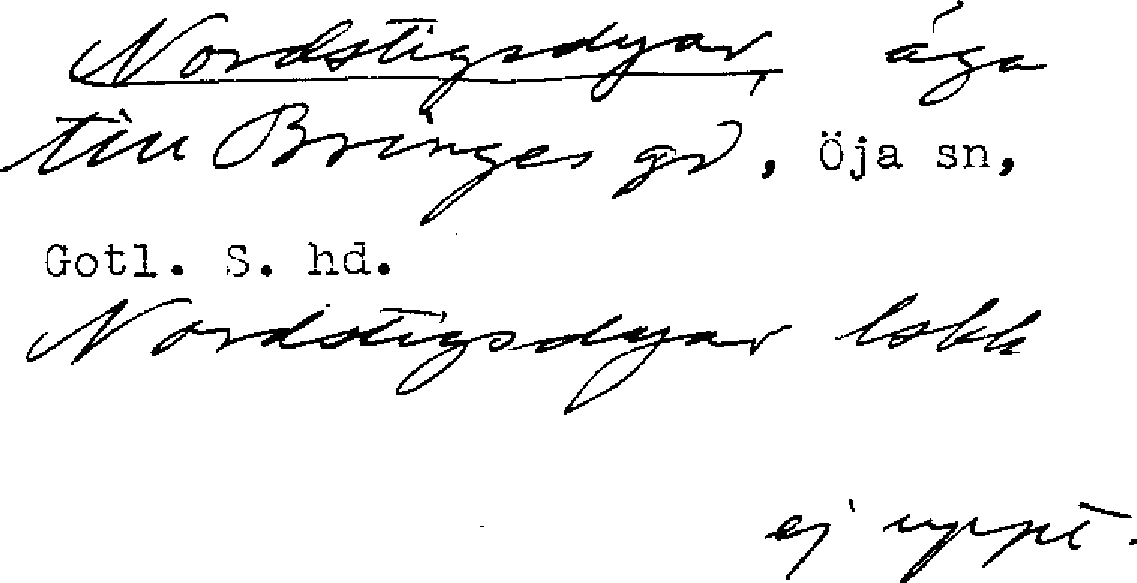 Nordstigsdyar, äga
till Bringes gd, Öja sn,
Gotl. S. hd.
Nordstigsdyar lskk
ej uppt.